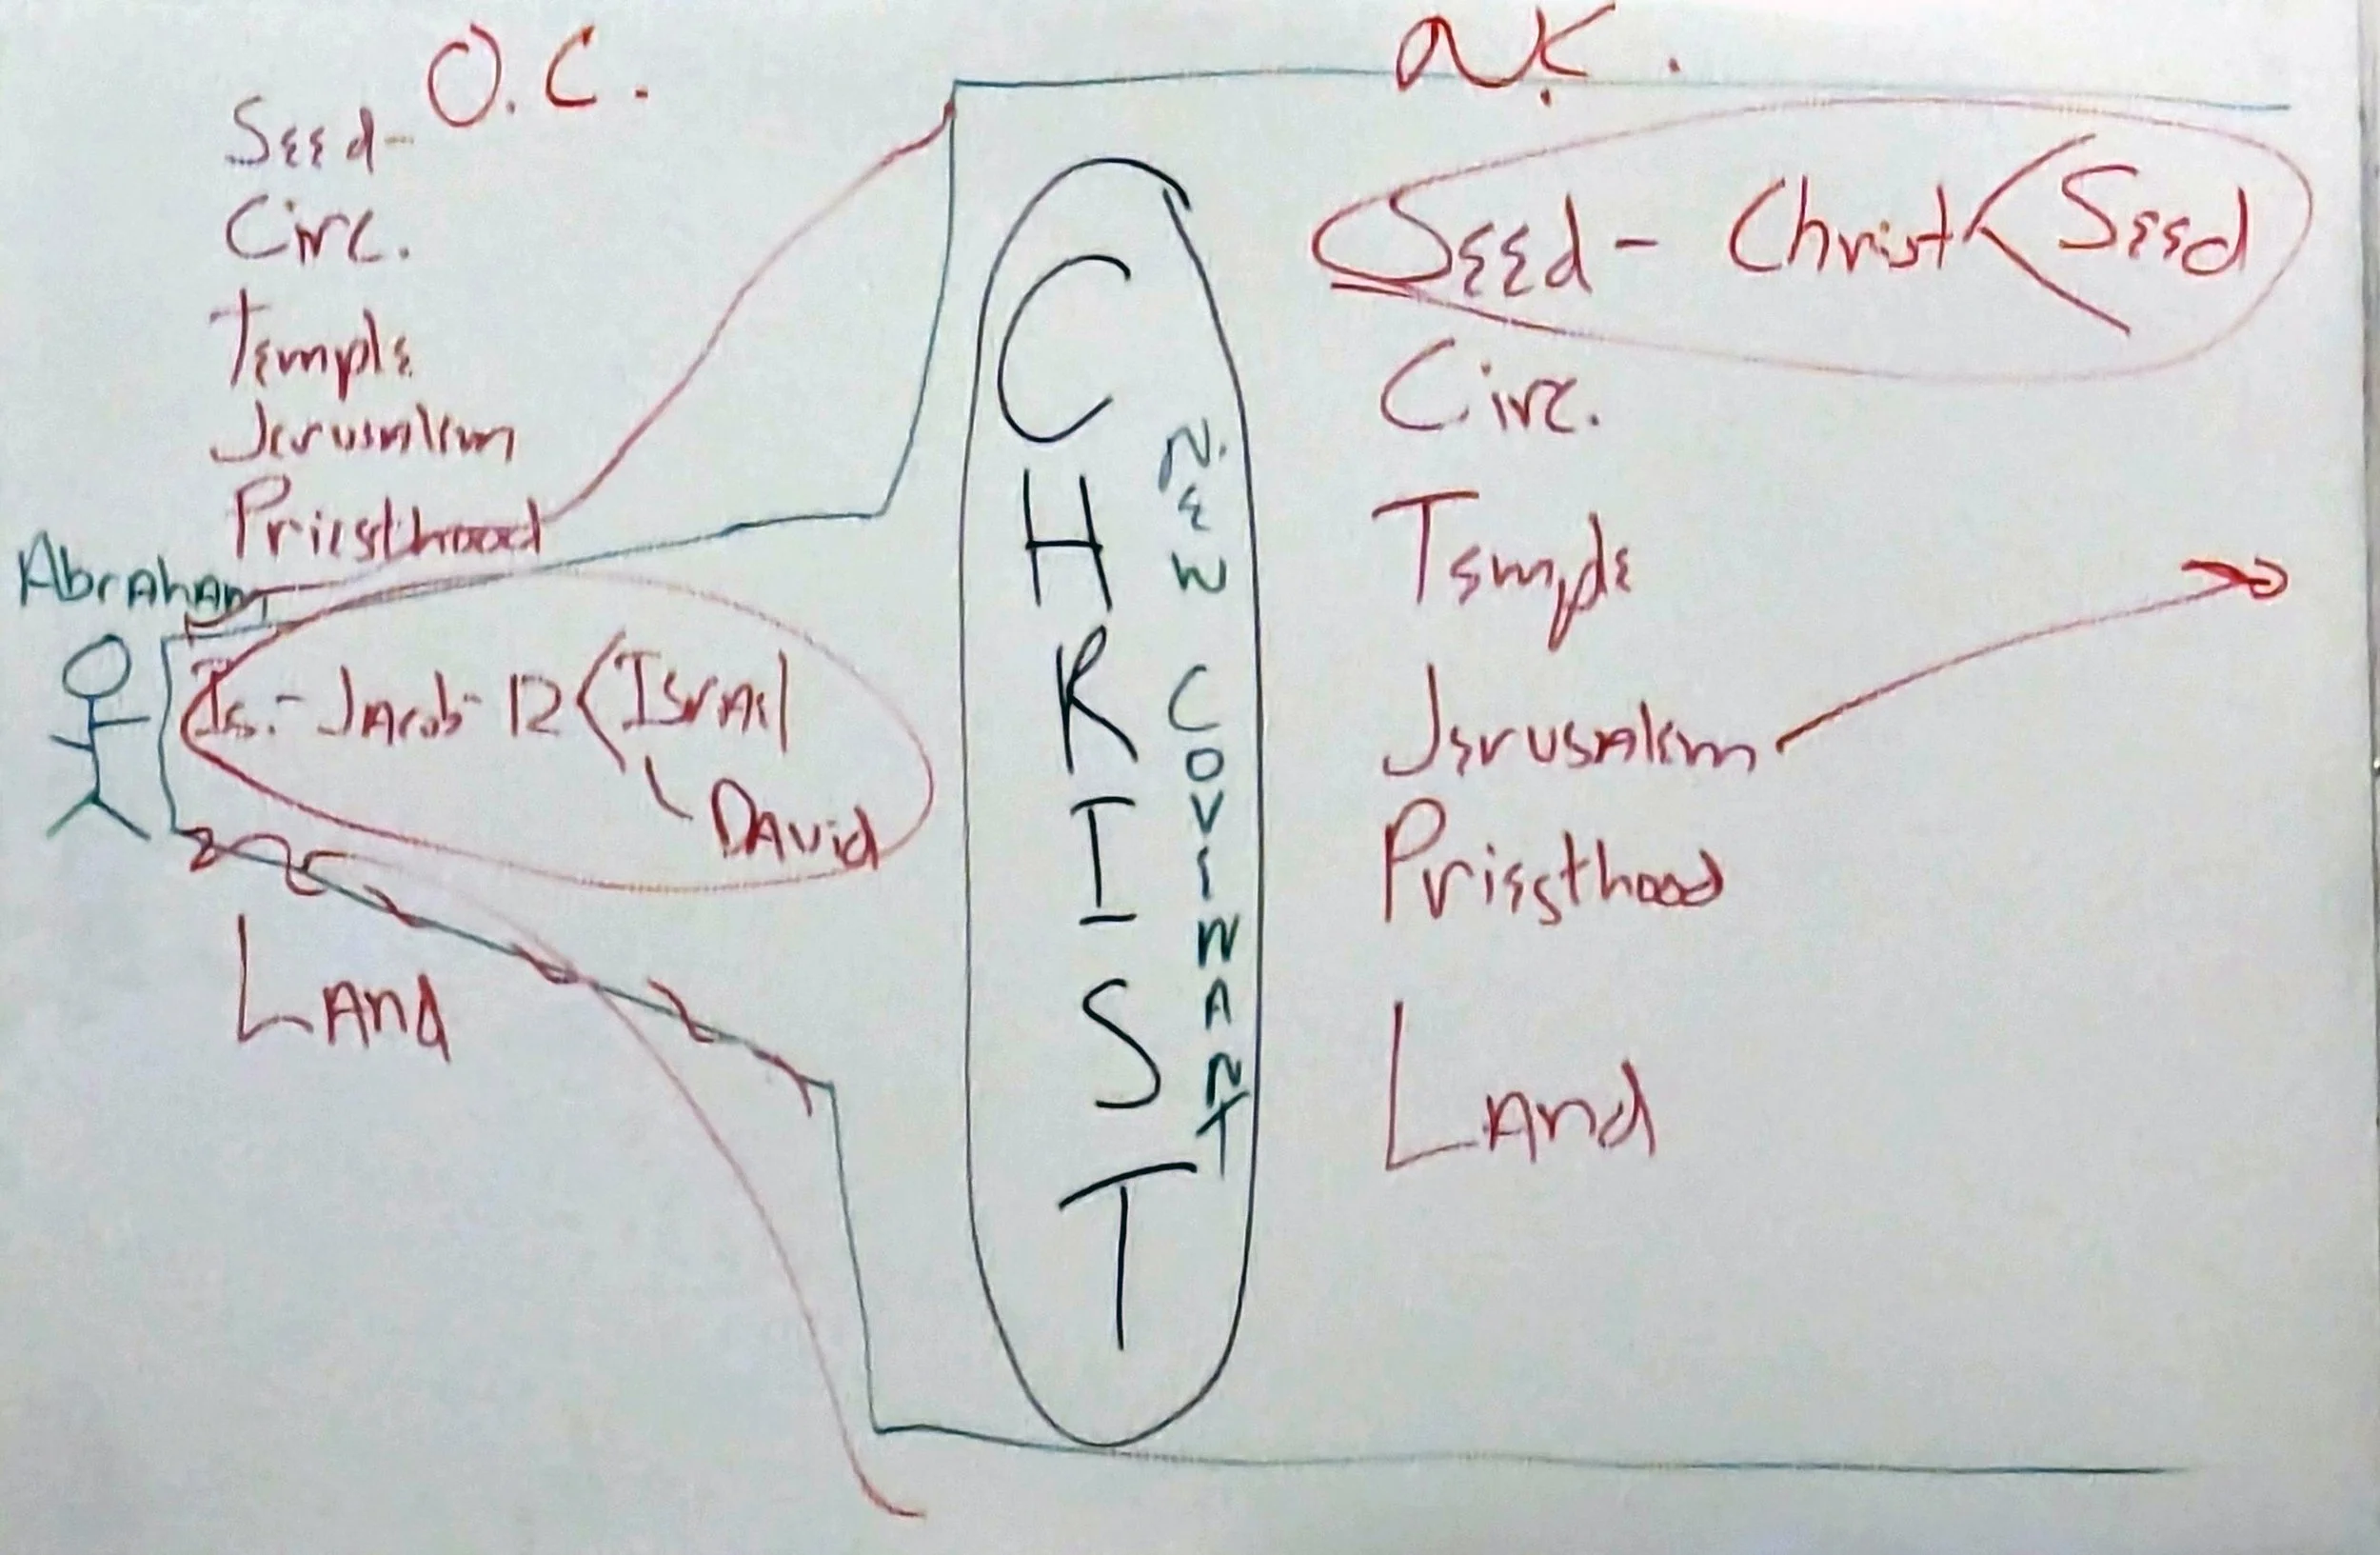 O.C.
Seed-
Circ.
Temple
Jerusalem
Priesthood
Abraham
Is.- Jacob- 12 < Israel
David
Land
CHRIST
NEW COVENANT
N.C.
Seed - Christ < Seed
Circ.
Temple
Jerusalem
Priesthood
Land